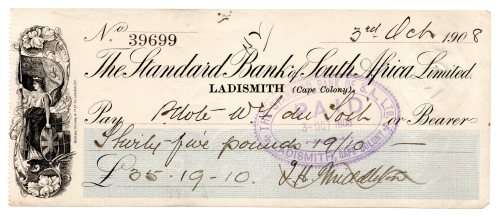 No 39699
3rd Oct 1908
The Standard Bank of South Africa Limited.
LADISMITH (Cape Colony)
Pay Note W du Toit or Bearer
Thirty five pounds 19/10 —
£35-19-10. Middleton
PAID
LADISMITH